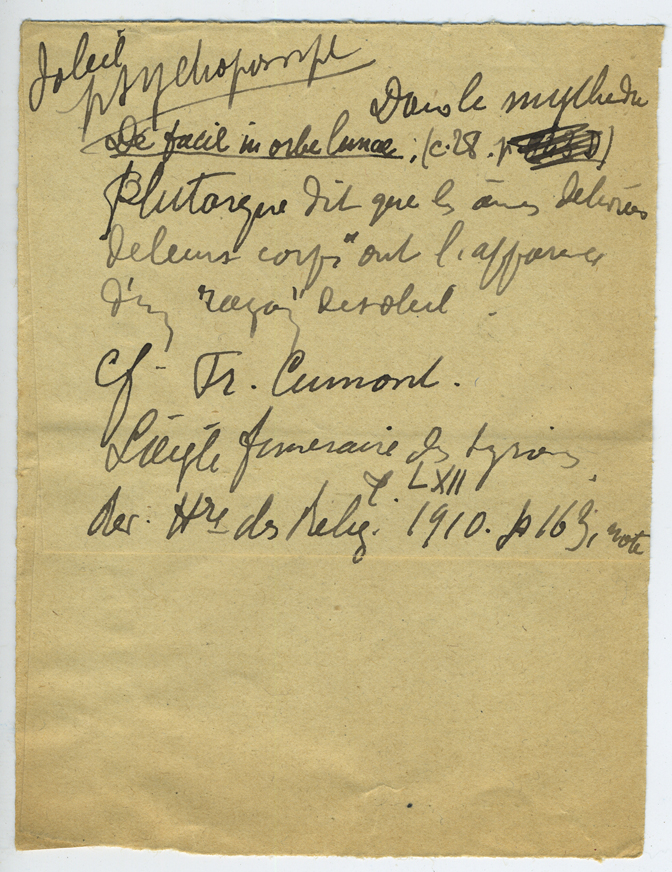 Soleil
psychopompe
Dans le mythe du
De facie in orbe lunae, (c. 28. p.
Plutarque dit que les âmes délivrées
de leurs corps "ont l'apparence
d'un rayon" de soleil.
Cf. Fr. Cumont.
L'aigle funéraire des Syriens
t. LXII
Rev. Hre des Relig. 1910. p 163, note